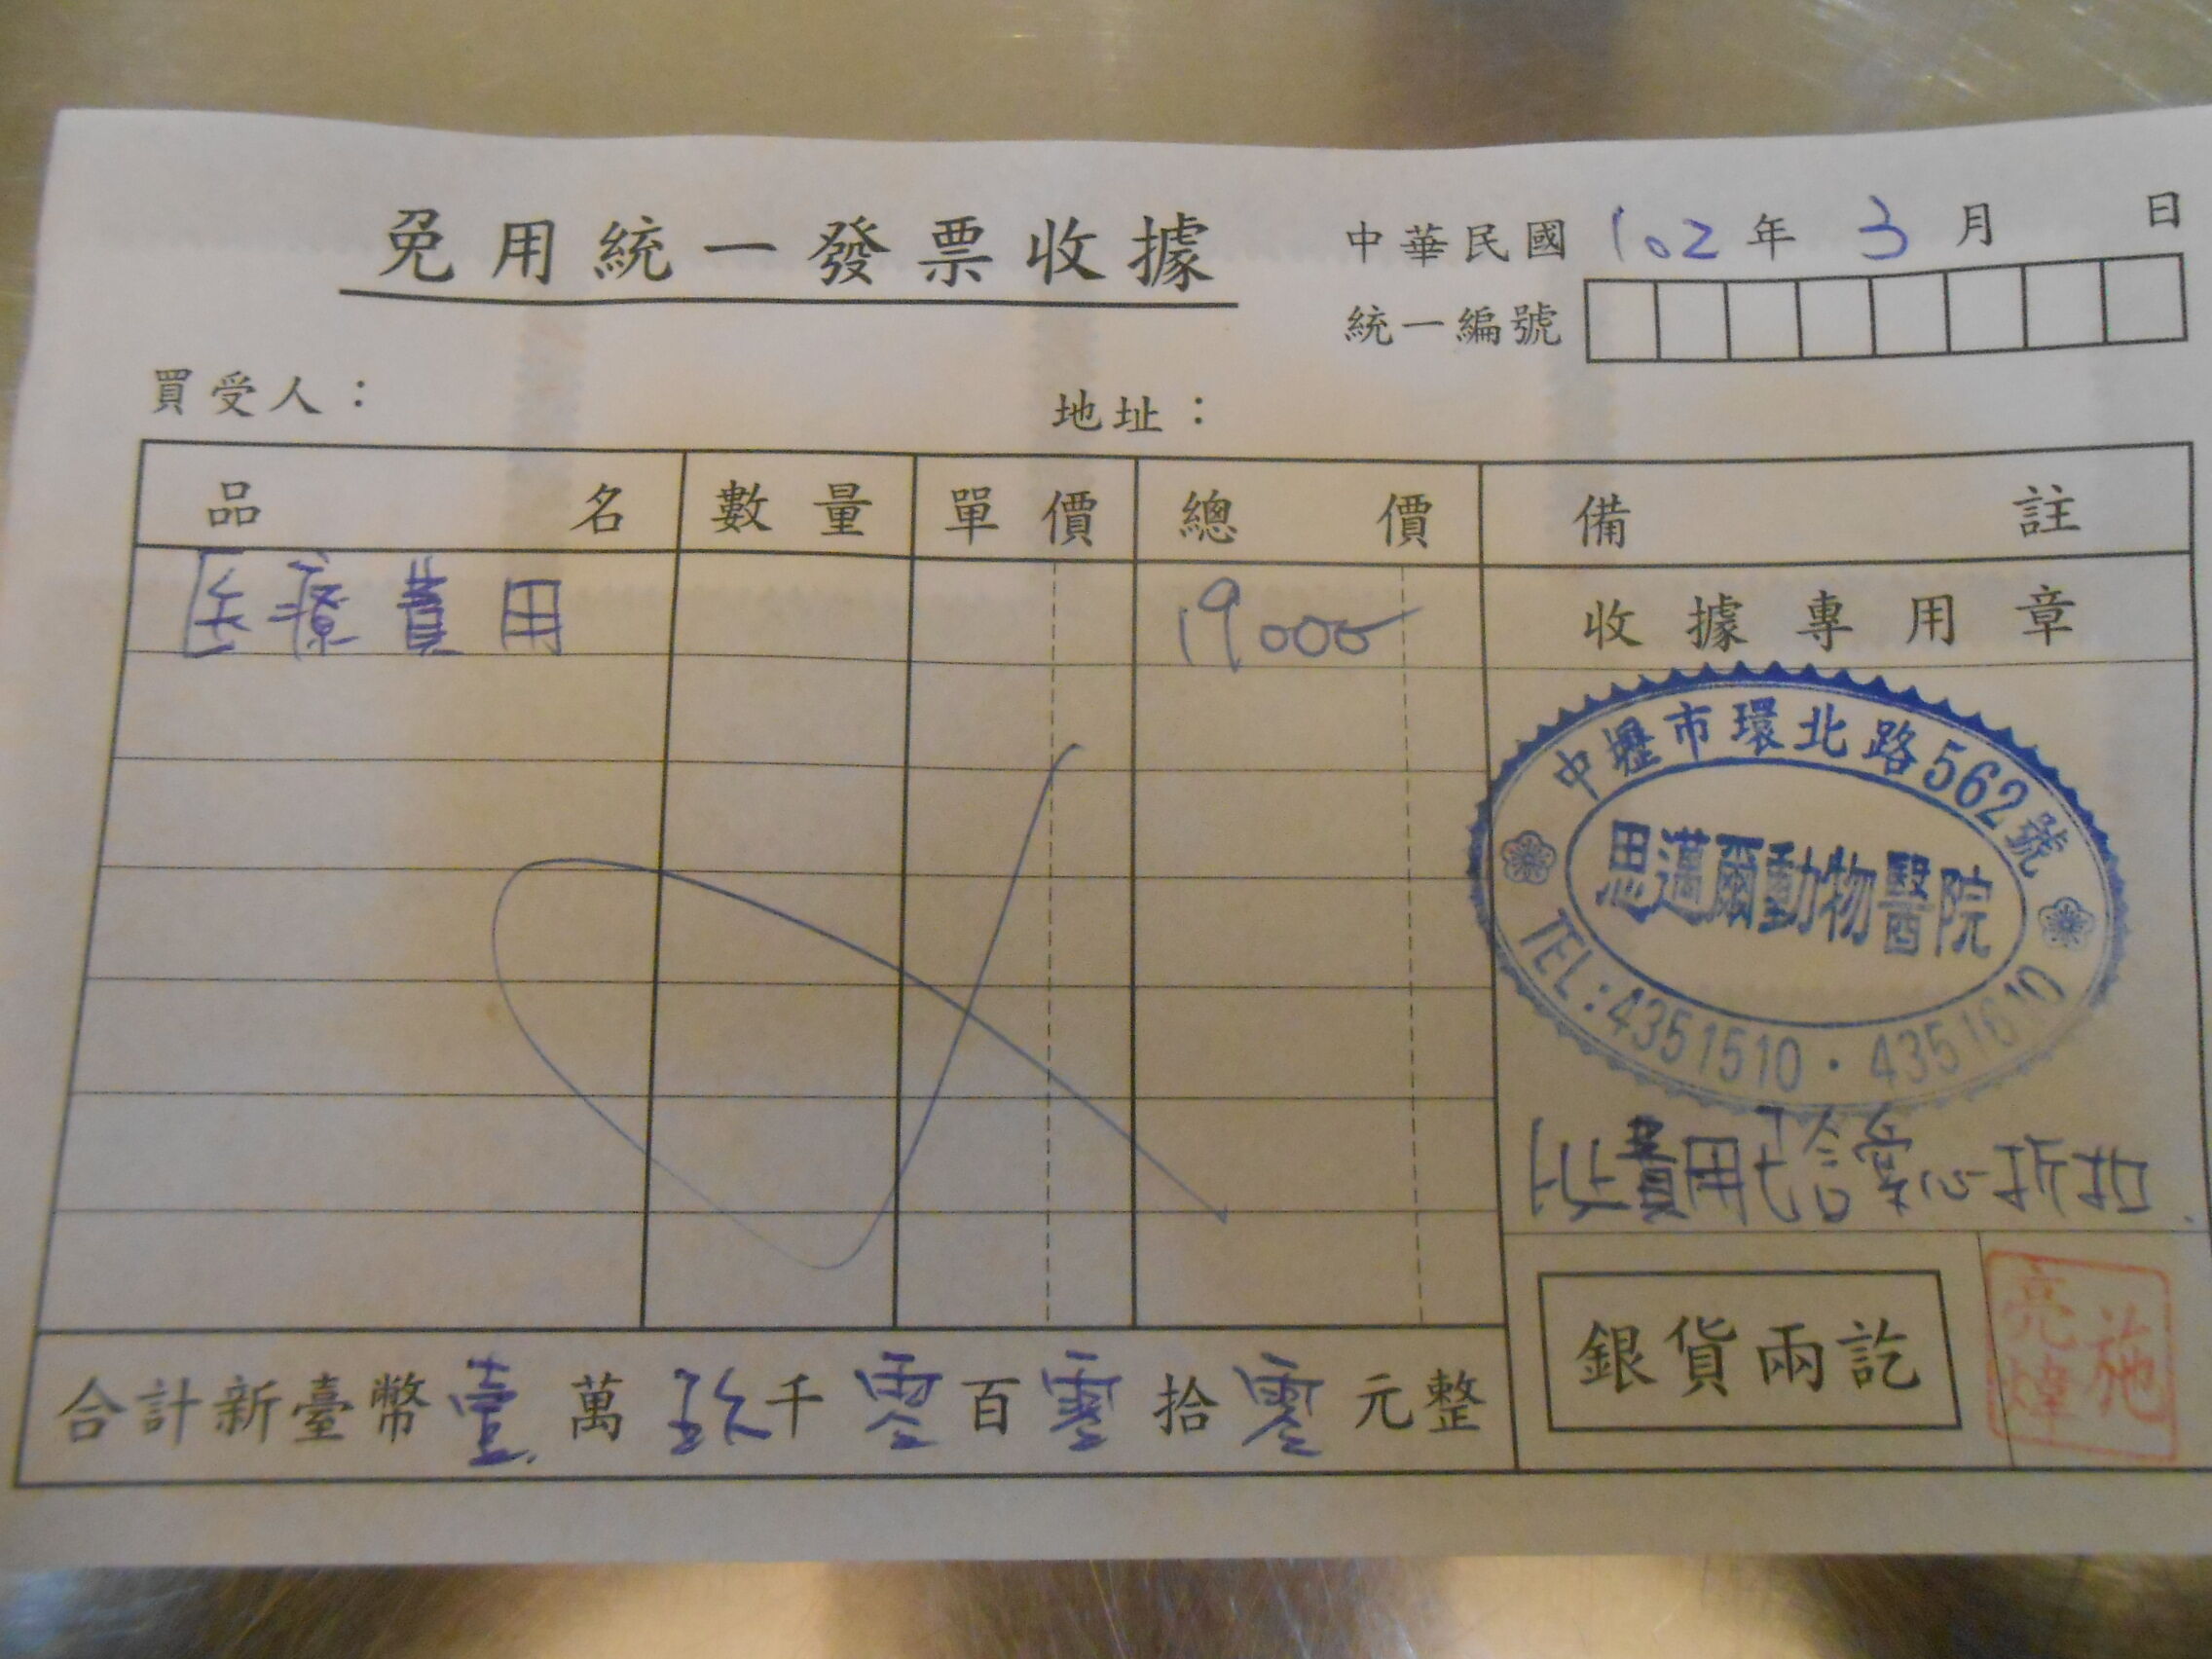 免用統一發票收據
中華民國 102 年 3 月 日
統一編號
買受人： 地址：
品名 數量 單價 總價 備註
医療費用 19000 收據專用章
中壢市環北路562號
思邁爾動物醫院
TEL:4351510·4351610
此費用已含愛心折扣.
銀貨兩訖
施亮煒
合計新臺幣壹萬玖千零百零拾零元整